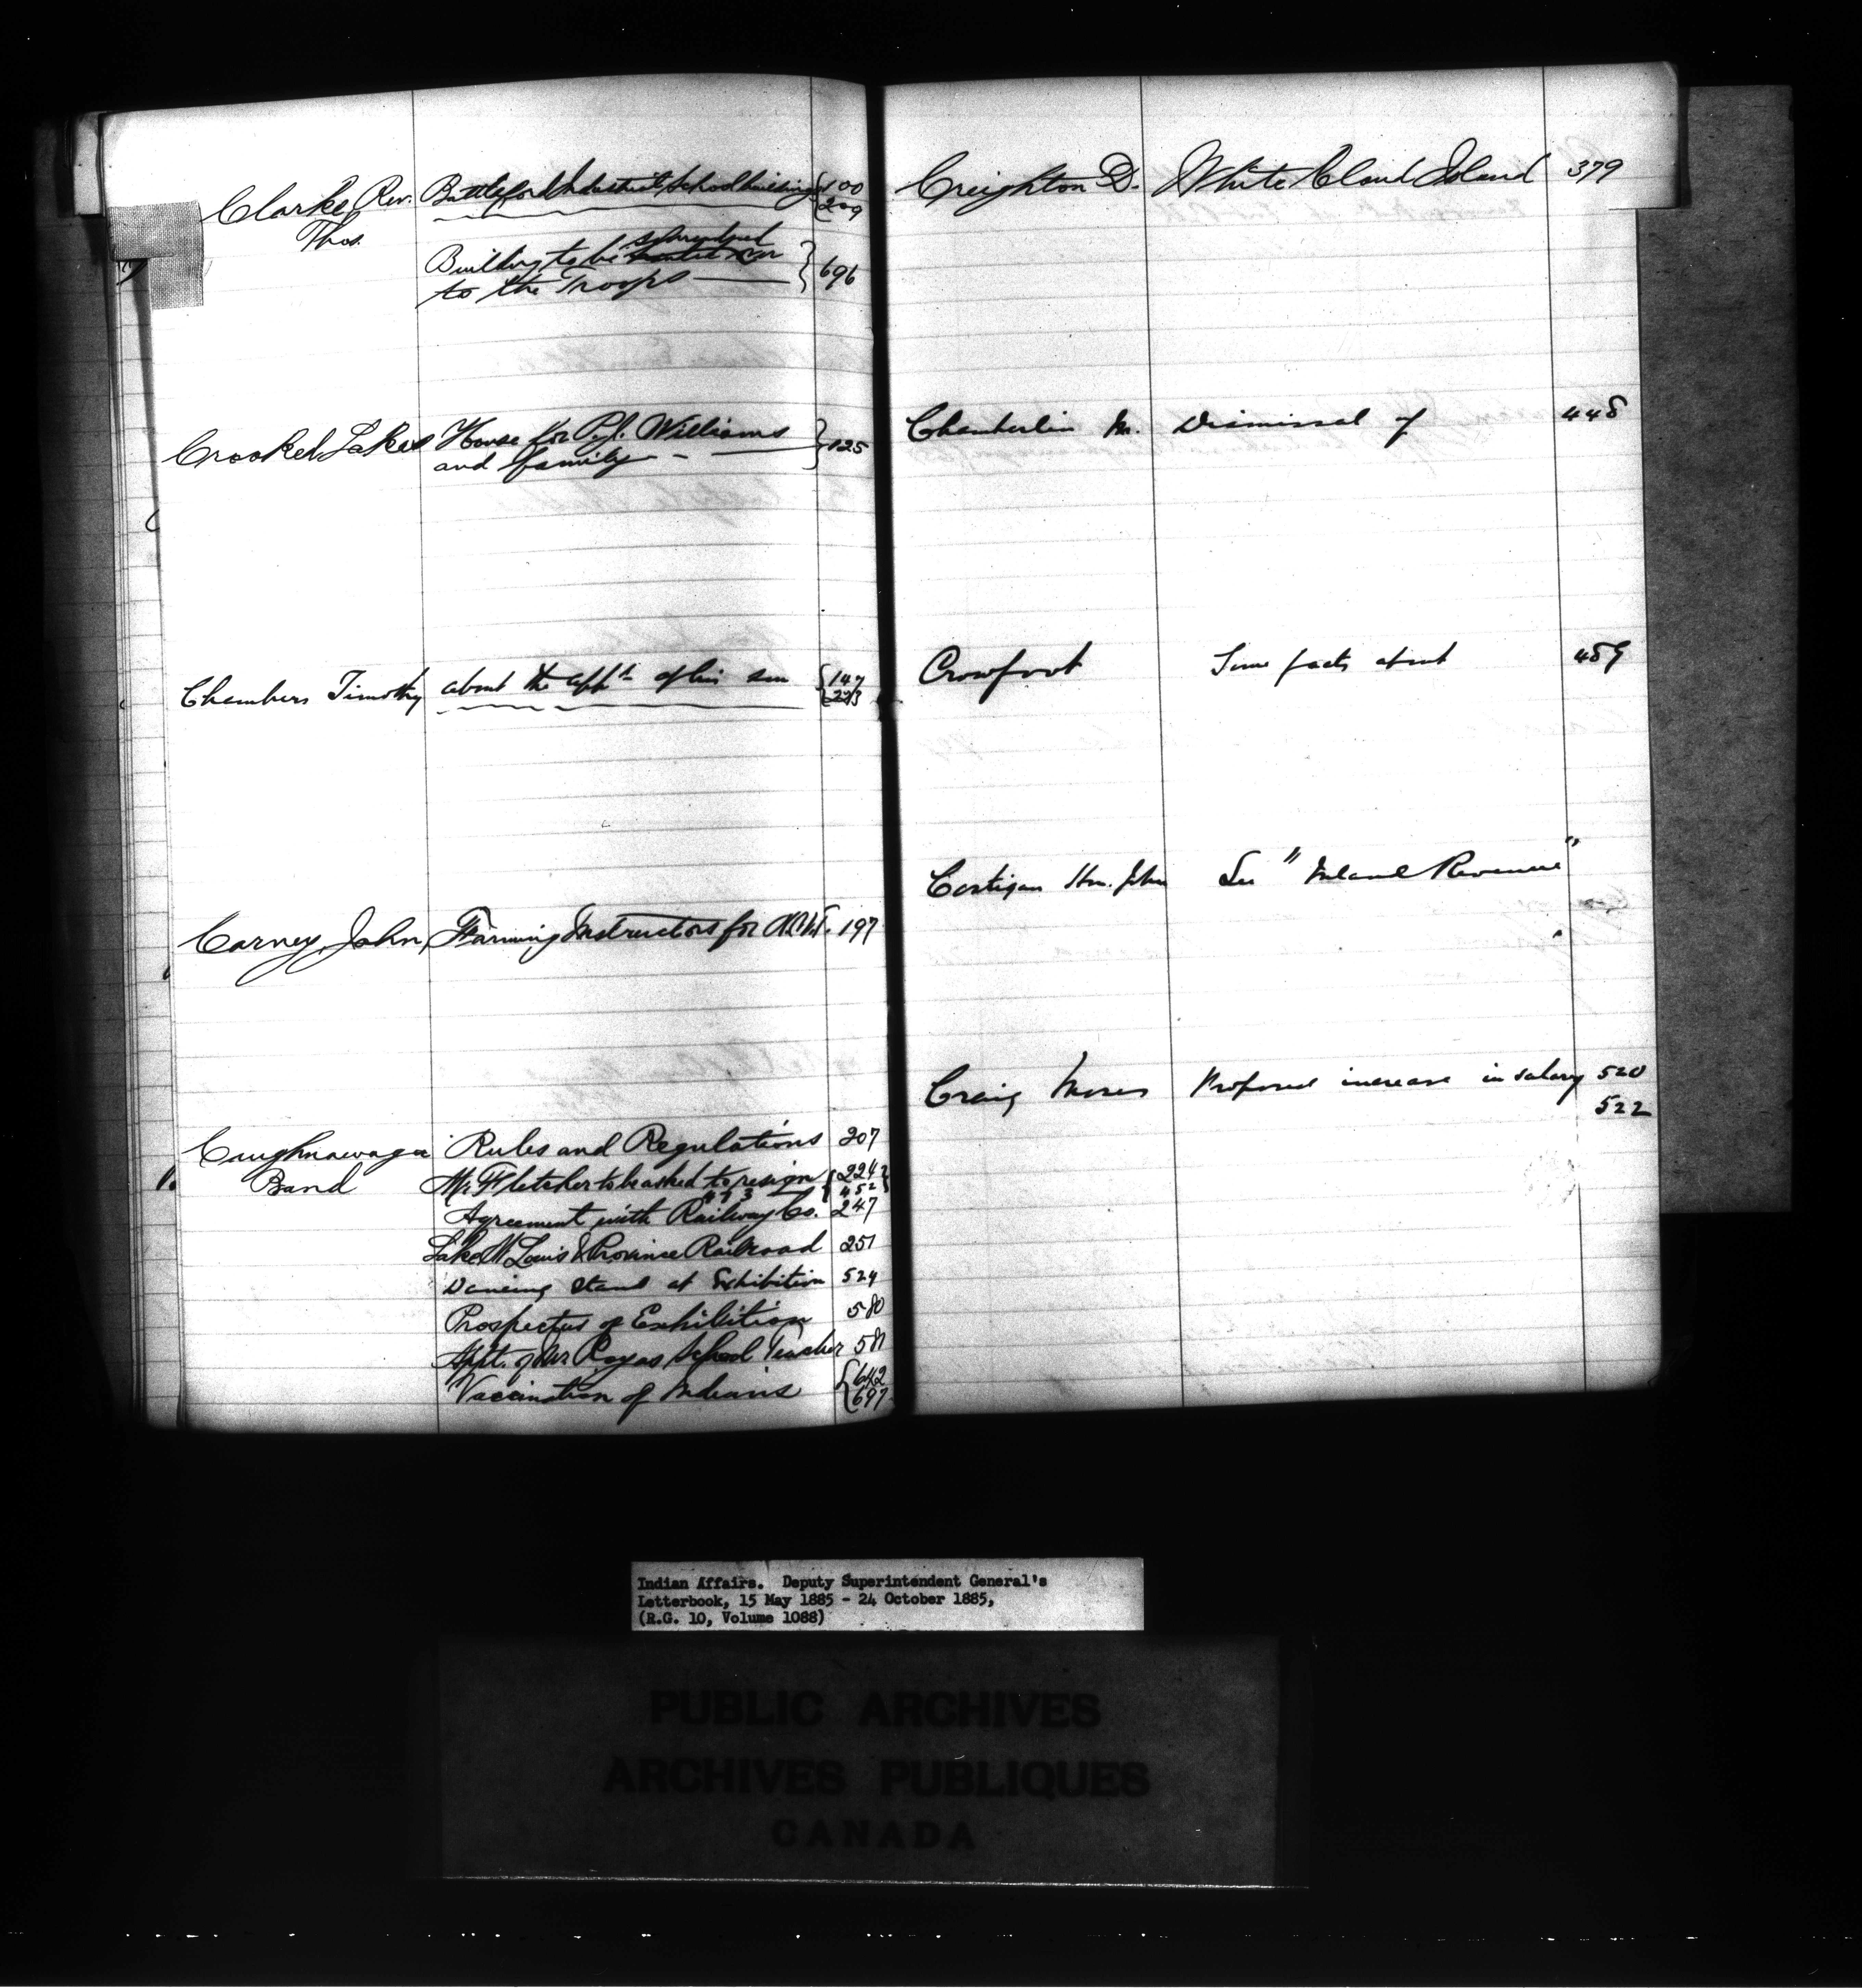 Clarke, Rev. Battleford Industrial School building {100
Thos. {209
surrendered
Building to be
to the Troops } 696
Crooked Lakes House for P.J. Williams
and family } 125
Chambers Timothy about the appt. of his son {147
{223
Carney, John, Farming Instructors for N.W.T. 197
Caughnawaga Rules and Regulations 207
Band Mr. Fletcher to be asked to resign {224}
{452}
493
Agreement with Railway Co. 247
Lake St Louis & Province Railroad 251
Dancing Stand at Exhibition 524
Prospectus of Exhibition 580
Appt. of Mr Roy as School Teacher 581
Vaccination of Indians {642
{697
Creighton D. White Cloud Island 379
Chamberlin Mr. Dismissal of 448
Crowfoot Some facts about 459
Costigan Hon. John See "Inland Revenue"
Craig Moses Proposed increase in salary 520
522
Indian Affairs. Deputy Superintendent General's
Letterbook, 15 May 1885 - 24 October 1885,
(R.G. 10, Volume 1088)
PUBLIC ARCHIVES
ARCHIVES PUBLIQUES
CANADA